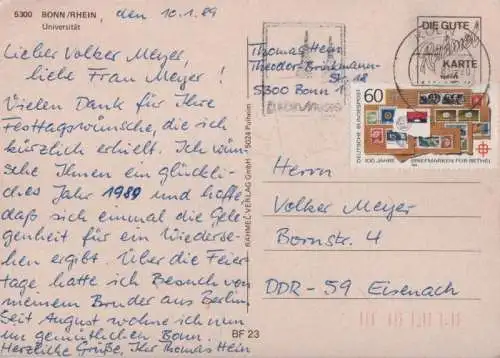 5300 BONN/RHEIN
Universität
, den 10.1.89
Lieber Volker Meyer,
liebe Frau Meyer!
Vielen Dank für Ihre
Festtagswünsche, die ich
kürzlich erhielt. Ich wün-
sche Ihnen ein glückli-
ches Jahr 1989 und hoffe
daß sich einmal die Gele-
genheit für ein Wiederse-
hen ergibt. Über die Feier-
tage hatte ich Besuch von
meinem Bruder aus Berlin.
Seit August wohne ich nun
im gemütlichen Bonn.
Herzliche Grüße, Ihr Thomas Hein
RAHMEL-VERLAG GMBH · 5024 Pulheim
BF 23
Thomas Hein
Theodor-Brinkmann-
Str. 18
5300 Bonn 1
DIE GUTE
KARTE
60
DEUTSCHE BUNDESPOST
100 JAHRE BRIEFMARKEN FÜR BETHEL
Herrn
Volker Meyer
Bornstr. 4
DDR-59 Eisenach